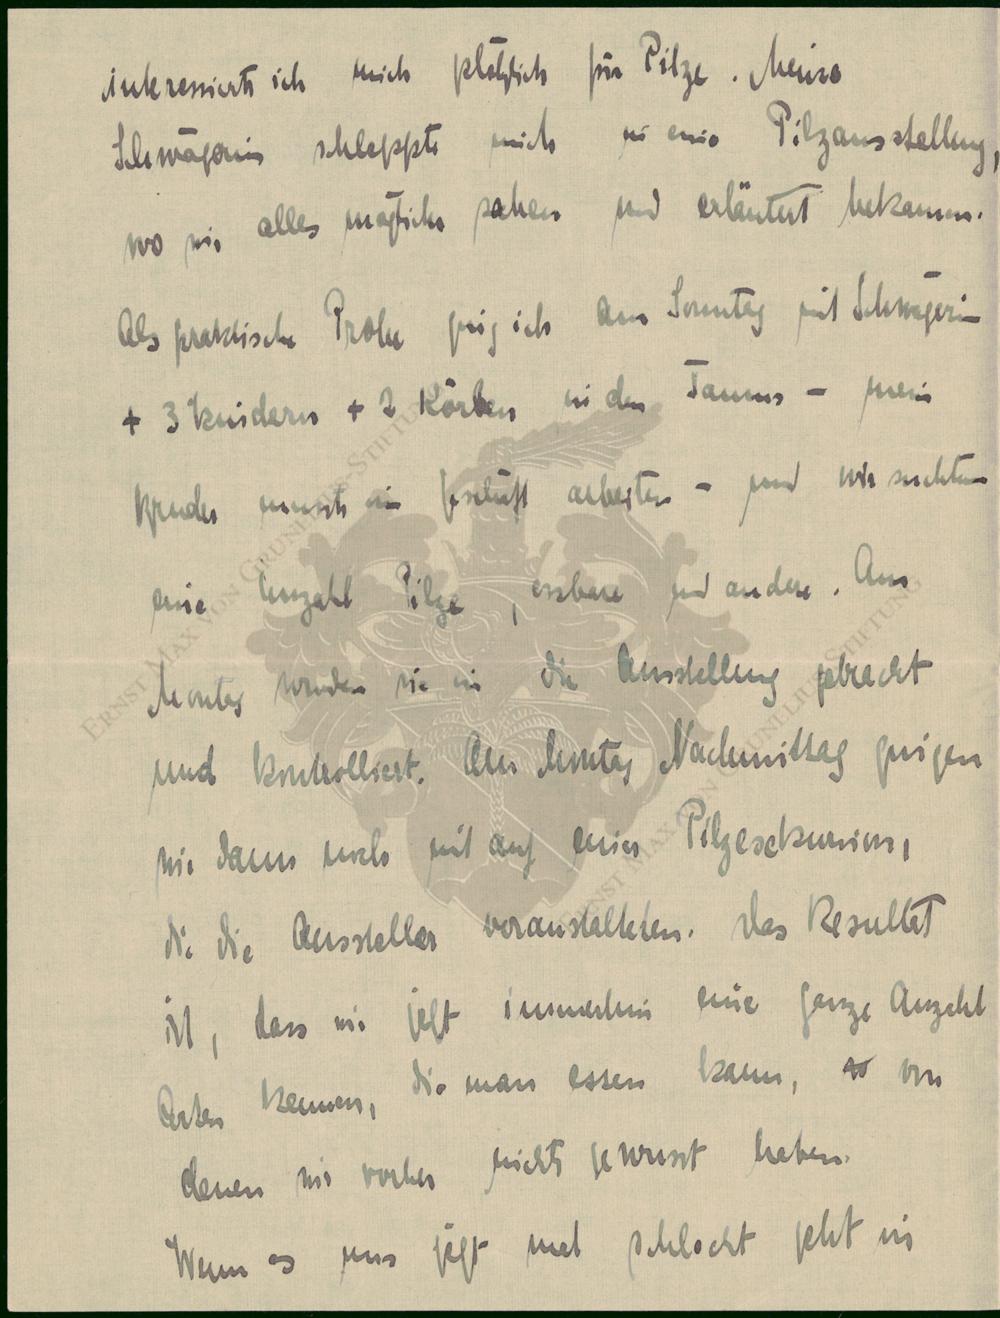 interessierte ich mich plötzlich für Pilze. Meine
Schwägerin schleppte mich in eine Pilzausstellung,
wo wir alles mögliche sahen und erläutert bekamen.
Als praktische Probe ging ich am Sonntag mit Schwägerin
+ 3 Kindern + 2 Körben in den Taunus – mein
Bruder musste im Geschäft arbeiten – und wir suchten
eine Anzahl Pilze, essbare und andere. Am
Montag wurden sie in die Ausstellung gebracht
und kontrolliert. Am Montag Nachmittag gingen
wir dann noch mit auf eine Pilzexkursion,
die die Aussteller veranstalteten. Das Resultat
ist, dass wir jetzt immerhin eine ganze Anzahl
Arten kennen, die man essen kann, von
denen wir vorher nichts gewusst haben.
Wenn es uns jetzt mal schlecht geht in
ERNST MAX VON GRUNELIUS-STIFTUNG
ERNST MAX VON GRUNELIUS-STIFTUNG